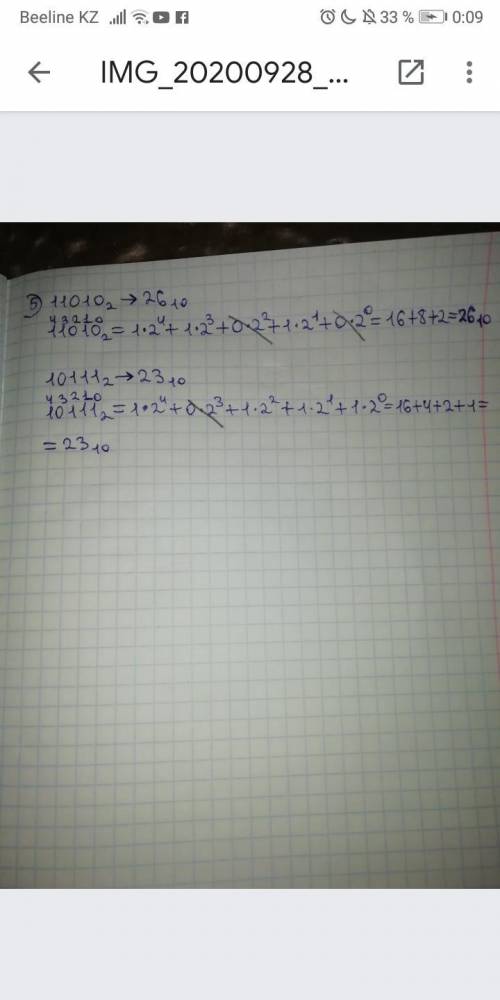 Beeline KZ 33 % 0:09
IMG_20200928_...
5) 11010₂ → 26₁₀
4 3 2 1 0
11010₂ = 1·2⁴ + 1·2³ + 0·2² + 1·2¹ + 0·2⁰ = 16+8+2=26₁₀
10111₂ → 23₁₀
4 3 2 1 0
10111₂ = 1·2⁴ + 0·2³ + 1·2² + 1·2¹ + 1·2⁰ = 16+4+2+1=
= 23₁₀